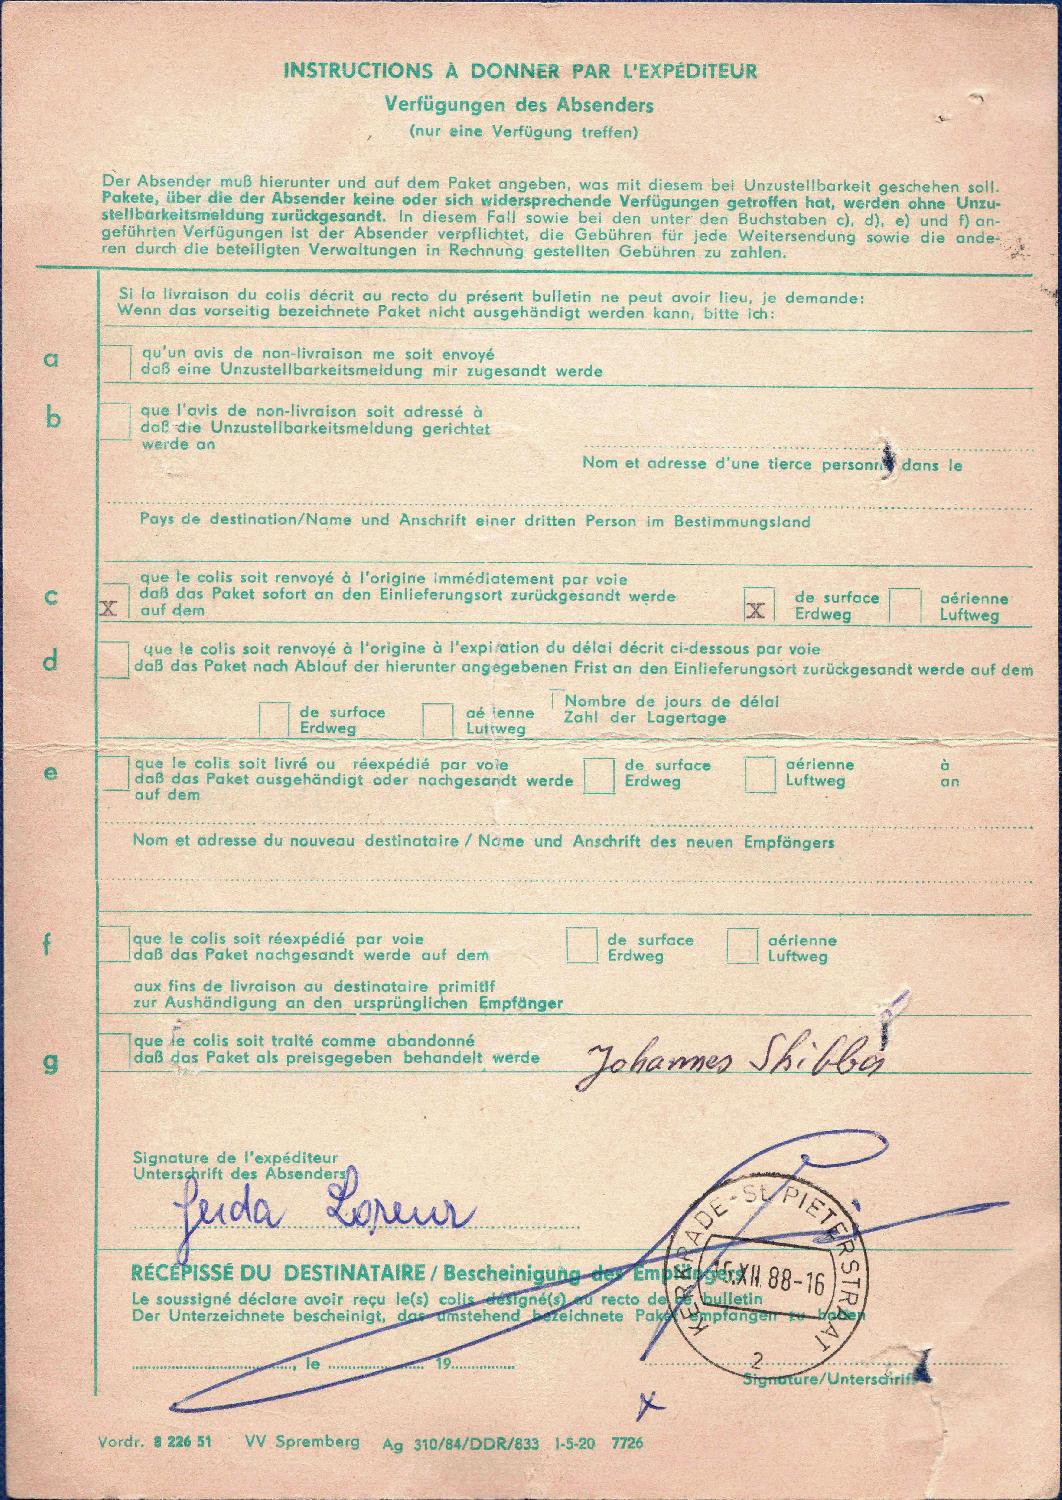 INSTRUCTIONS À DONNER PAR L'EXPÉDITEUR
Verfügungen des Absenders
(nur eine Verfügung treffen)
Der Absender muß hierunter und auf dem Paket angeben, was mit diesem bei Unzustellbarkeit geschehen soll.
Pakete, über die der Absender keine oder sich widersprechende Verfügungen getroffen hat, werden ohne Unzu-
stellbarkeitsmeldung zurückgesandt. In diesem Fall sowie bei den unter den Buchstaben c), d), e) und f) an-
geführten Verfügungen ist der Absender verpflichtet, die Gebühren für jede Weitersendung sowie die ande-
ren durch die beteiligten Verwaltungen in Rechnung gestellten Gebühren zu zahlen.
Si la livraison du colis décrit au recto du présent bulletin ne peut avoir lieu, je demande:
Wenn das vorseitig bezeichnete Paket nicht ausgehändigt werden kann, bitte ich:
a
qu'un avis de non-livraison me soit envoyé
daß eine Unzustellbarkeitsmeldung mir zugesandt werde
b
que l'avis de non-livraison soit adressé à
daß die Unzustellbarkeitsmeldung gerichtet
werde an
Nom et adresse d'une tierce personne dans le
Pays de destination/Name und Anschrift einer dritten Person im Bestimmungsland
c
X
que le colis soit renvoyé à l'origine immédiatement par voie
daß das Paket sofort an den Einlieferungsort zurückgesandt werde
auf dem
X
de surface
Erdweg
aérienne
Luftweg
d
que le colis soit renvoyé à l'origine à l'expiration du délai décrit ci-dessous par voie
daß das Paket nach Ablauf der hierunter angegebenen Frist an den Einlieferungsort zurückgesandt werde auf dem
de surface
Erdweg
aérienne
Luftweg
Nombre de jours de délai
Zahl der Lagertage
e
que le colis soit livré ou réexpédié par voie
daß das Paket ausgehändigt oder nachgesandt werde
auf dem
de surface
Erdweg
aérienne
Luftweg
à
an
Nom et adresse du nouveau destinataire / Name und Anschrift des neuen Empfängers
f
que le colis soit réexpédié par voie
daß das Paket nachgesandt werde auf dem
de surface
Erdweg
aérienne
Luftweg
aux fins de livraison au destinataire primitif
zur Aushändigung an den ursprünglichen Empfänger
g
que le colis soit traité comme abandonné
daß das Paket als preisgegeben behandelt werde
Johannes
Signature de l'expéditeur
Unterschrift des Absenders
KERKRADE-St PIETERSTRAAT
RÉCÉPISSÉ DU DESTINATAIRE / Bescheinigung des Empfängers
15.XII 88-16
Le soussigné déclare avoir reçu le(s) colis désigné(s) au recto de ce bulletin
Der Unterzeichnete bescheinigt, das umstehend bezeichnete Paket empfangen zu haben
, le 19
2
Signature/Unterschrift
x
Vordr. 8 226 51 VV Spremberg Ag 310/84/DDR/833 I-5-20 7726